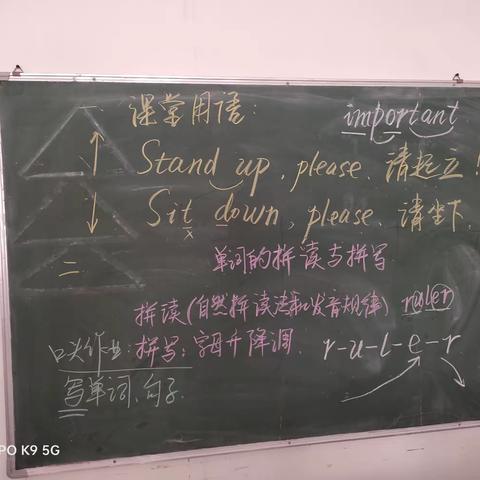 一
课堂用语:
important
Stand up, please. 请起立!
Sit down, please. 请坐下.
x
二
单词的拼读与拼写
拼读(自然拼读法和发音规律) ruler
口头作业: 拼写: 字母升降调. r-u-l-e-r
写单词、句子.
PO K9 5G